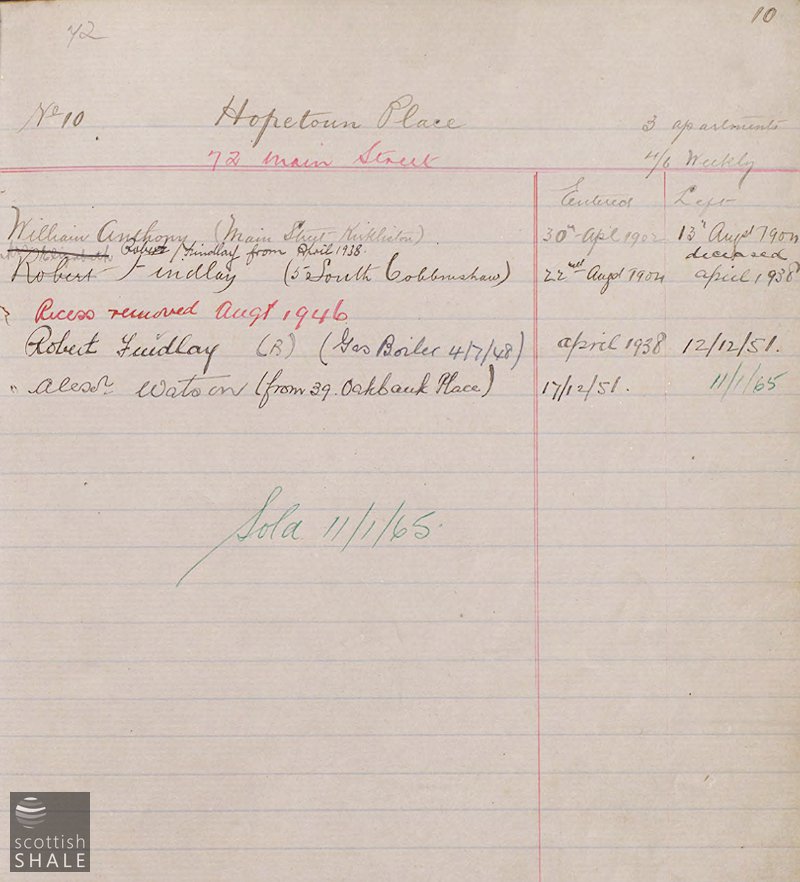 10
72
No 10 Hopetoun Place 3 apartments
72 Main Street 4/6 Weekly
Entered Left
William Anthony (Main Street Kirkliston) 30th April 1902 13th Augst 1904
Robert Findlay from April 1938 deceased
Robert Findlay (52 South Cobbinshaw) 22nd Augst 1904 april 1938
Recess removed Augt 1946
Robert Findlay (B) (Gas Boiler 4/7/48) april 1938 12/12/51.
" Alexr Watson (from 39. Oakbank Place) 17/12/51. 11/1/65
Sold 11/1/65.
scottish
SHALE